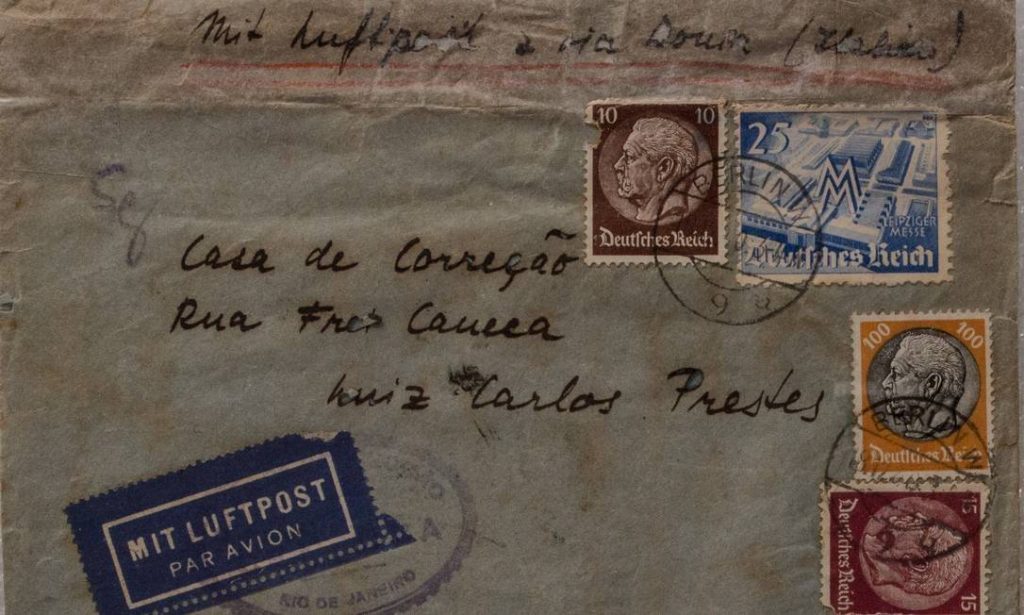 Mit Luftpost via
10 10
Deutsches Reich
25
LEIPZIGER
MESSE
Deutsches Reich
BERLIN W
9
Casa de Correção
Rua Frei Caneca
Luiz Carlos Prestes
100 100
Deutsches Reich
BERLIN W
9
15
Deutsches Reich
15
MIT LUFTPOST
PAR AVION
RIO DE JANEIRO